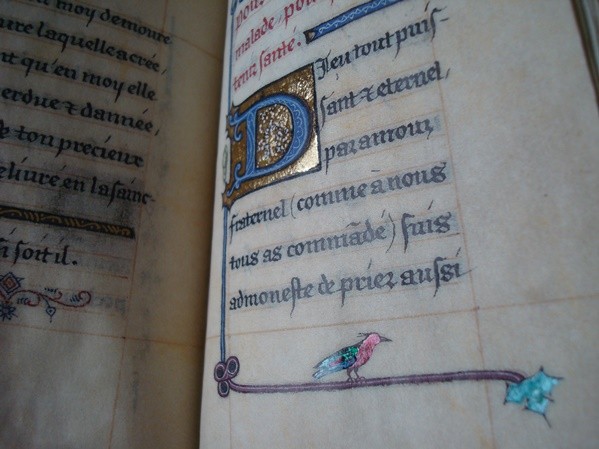 moy demoure
laquelle a crée,
qu'en moy elle
perdue & dannée,
ton precieux
delivre en la sainc-
soit il.
malade, pour
tenir santé.
Dieu tout puis-
sant & eternel,
par amour
fraternel (comme à nous
tous as commãdé) suis
admoneste de prier aussi